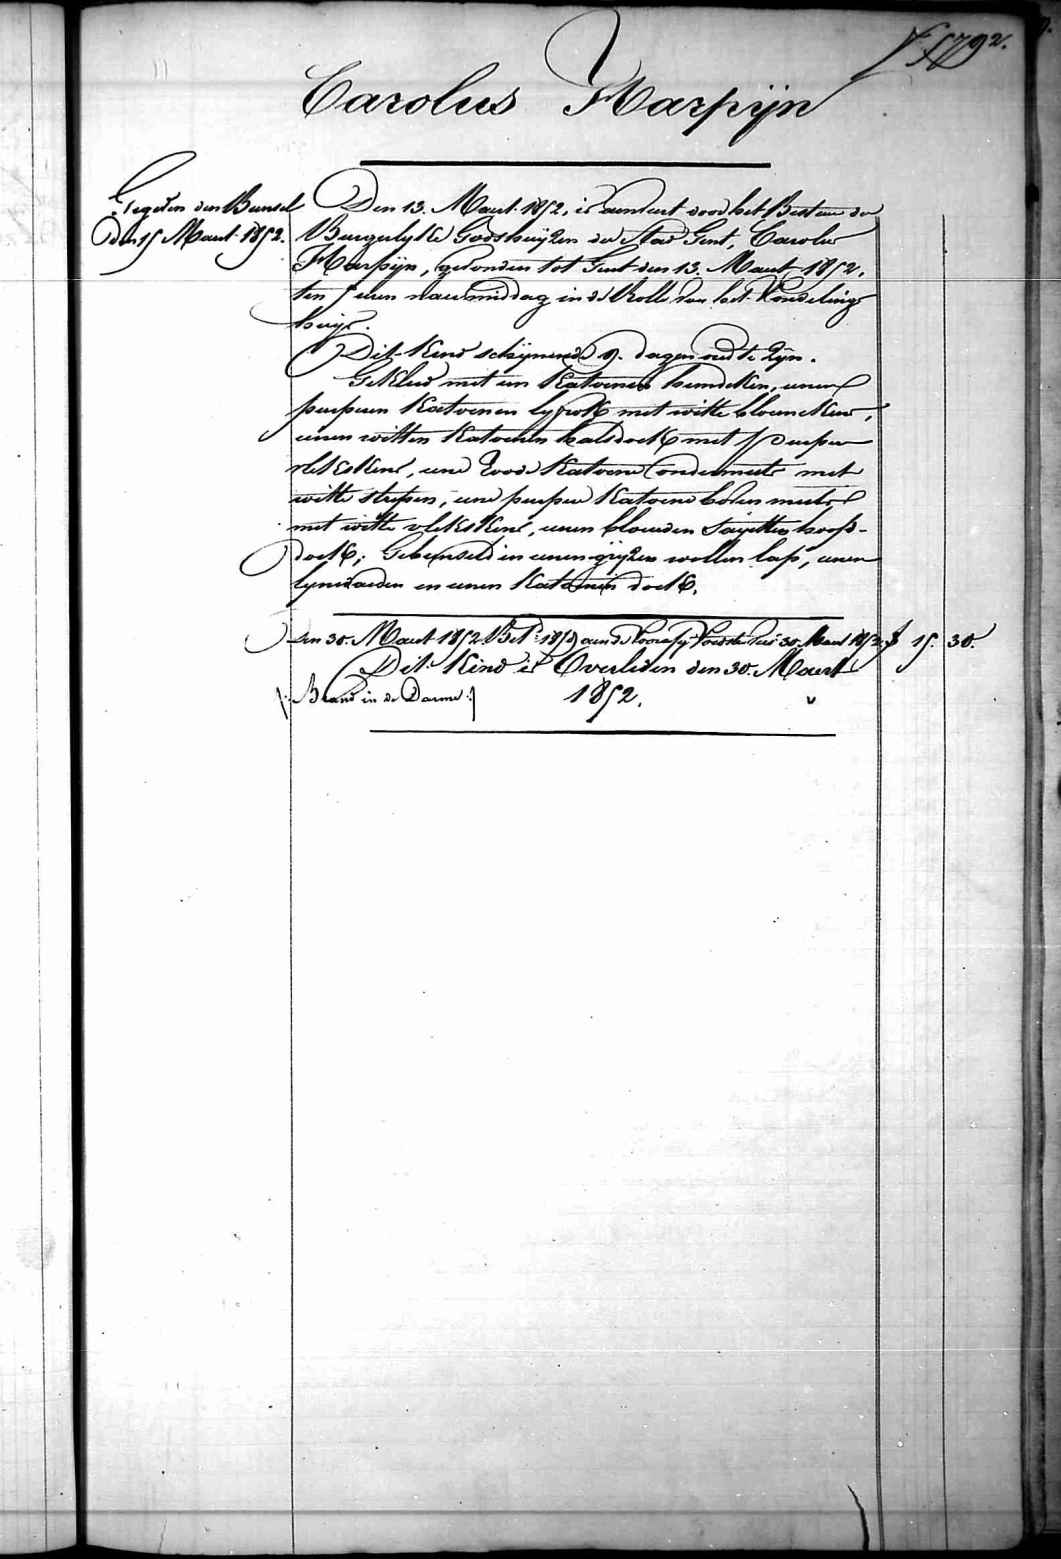 Carolus Harpijn
Gegeven den Bunsel
den 15 Maart 1852.
Den 13. Maart 1852, is aenveert door het Bestuer der
Burgerlyke Godshuijzen der Stad Gent, Carolus
Harpijn, gevonden tot Gent den 13. Maart 1852,
ten 7 uren naermiddag in de Rolle van het Vondeling-
huijs.
Dit Kind schijnende 9. dagen oud te zyn.
Gekleed met een Katoenen hemdeken, eenen
purpuren Katoenen lyfrok met witte bloemekens,
eenen witten Katoenen halsdoek met purpere
vlekskens, eene roode Katoene ondermuts met
witte strepen, eene purpere Katoene bovenmuts,
met witte vlekskens, eenen blauwen Sayetten hoofd-
doek; Gebunseld in eenen grijzen wollen lap, eenen
lynwaeden en eenen Katoenen doek.
Den 30. Maart 1852 Bet. 1852 aen de Voedster 30. Maart 1852 f 15. 30.
Dit Kind is Overleden den 30. Maart
1852.
(: Brand in de Darme :)